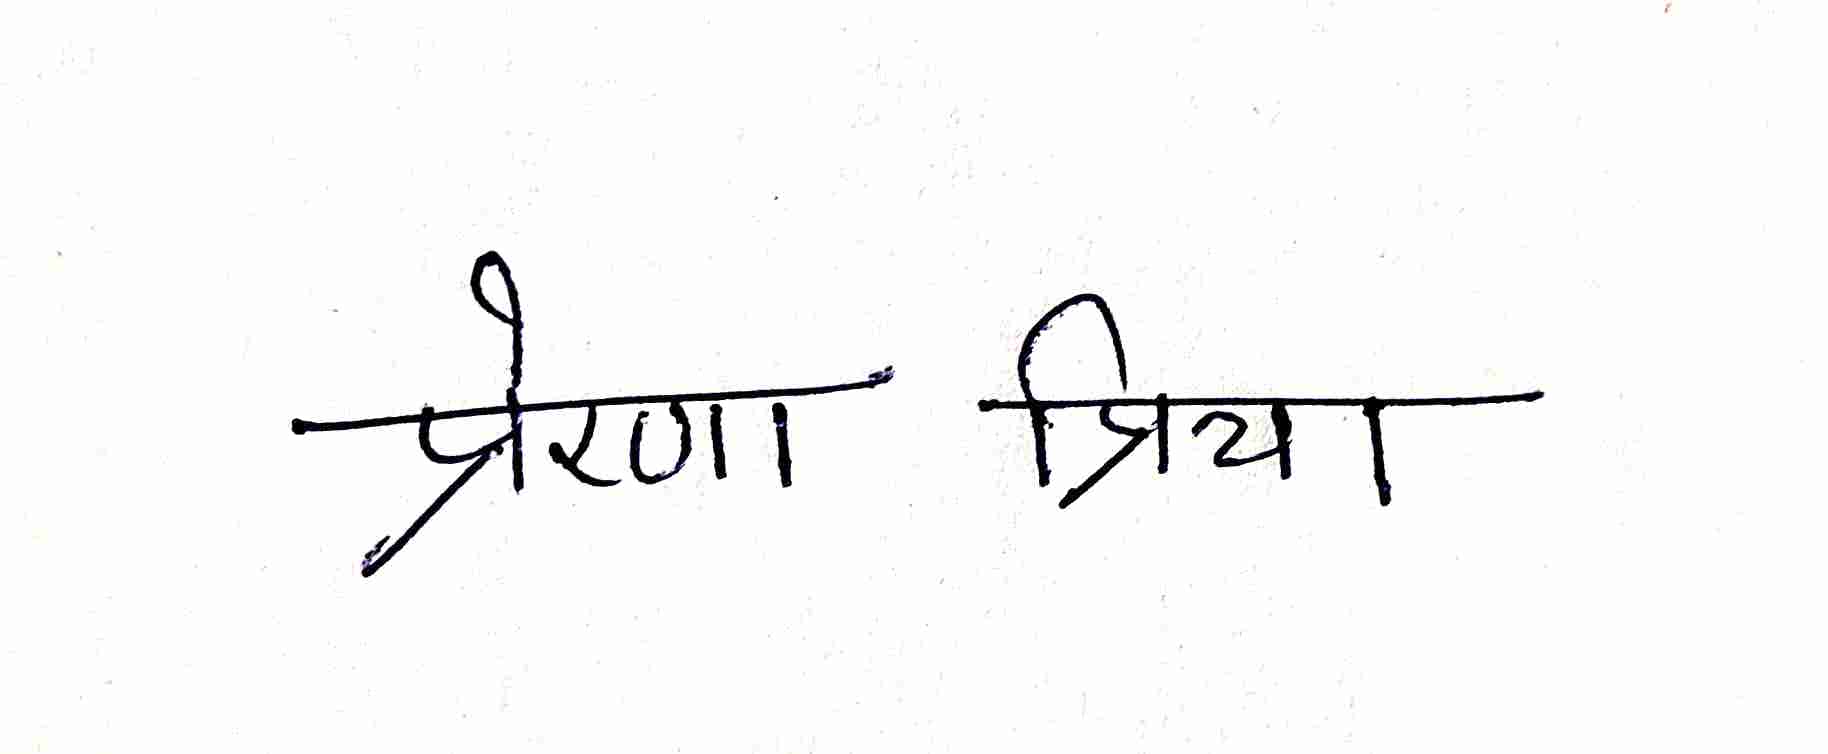 प्रेरणा प्रिया